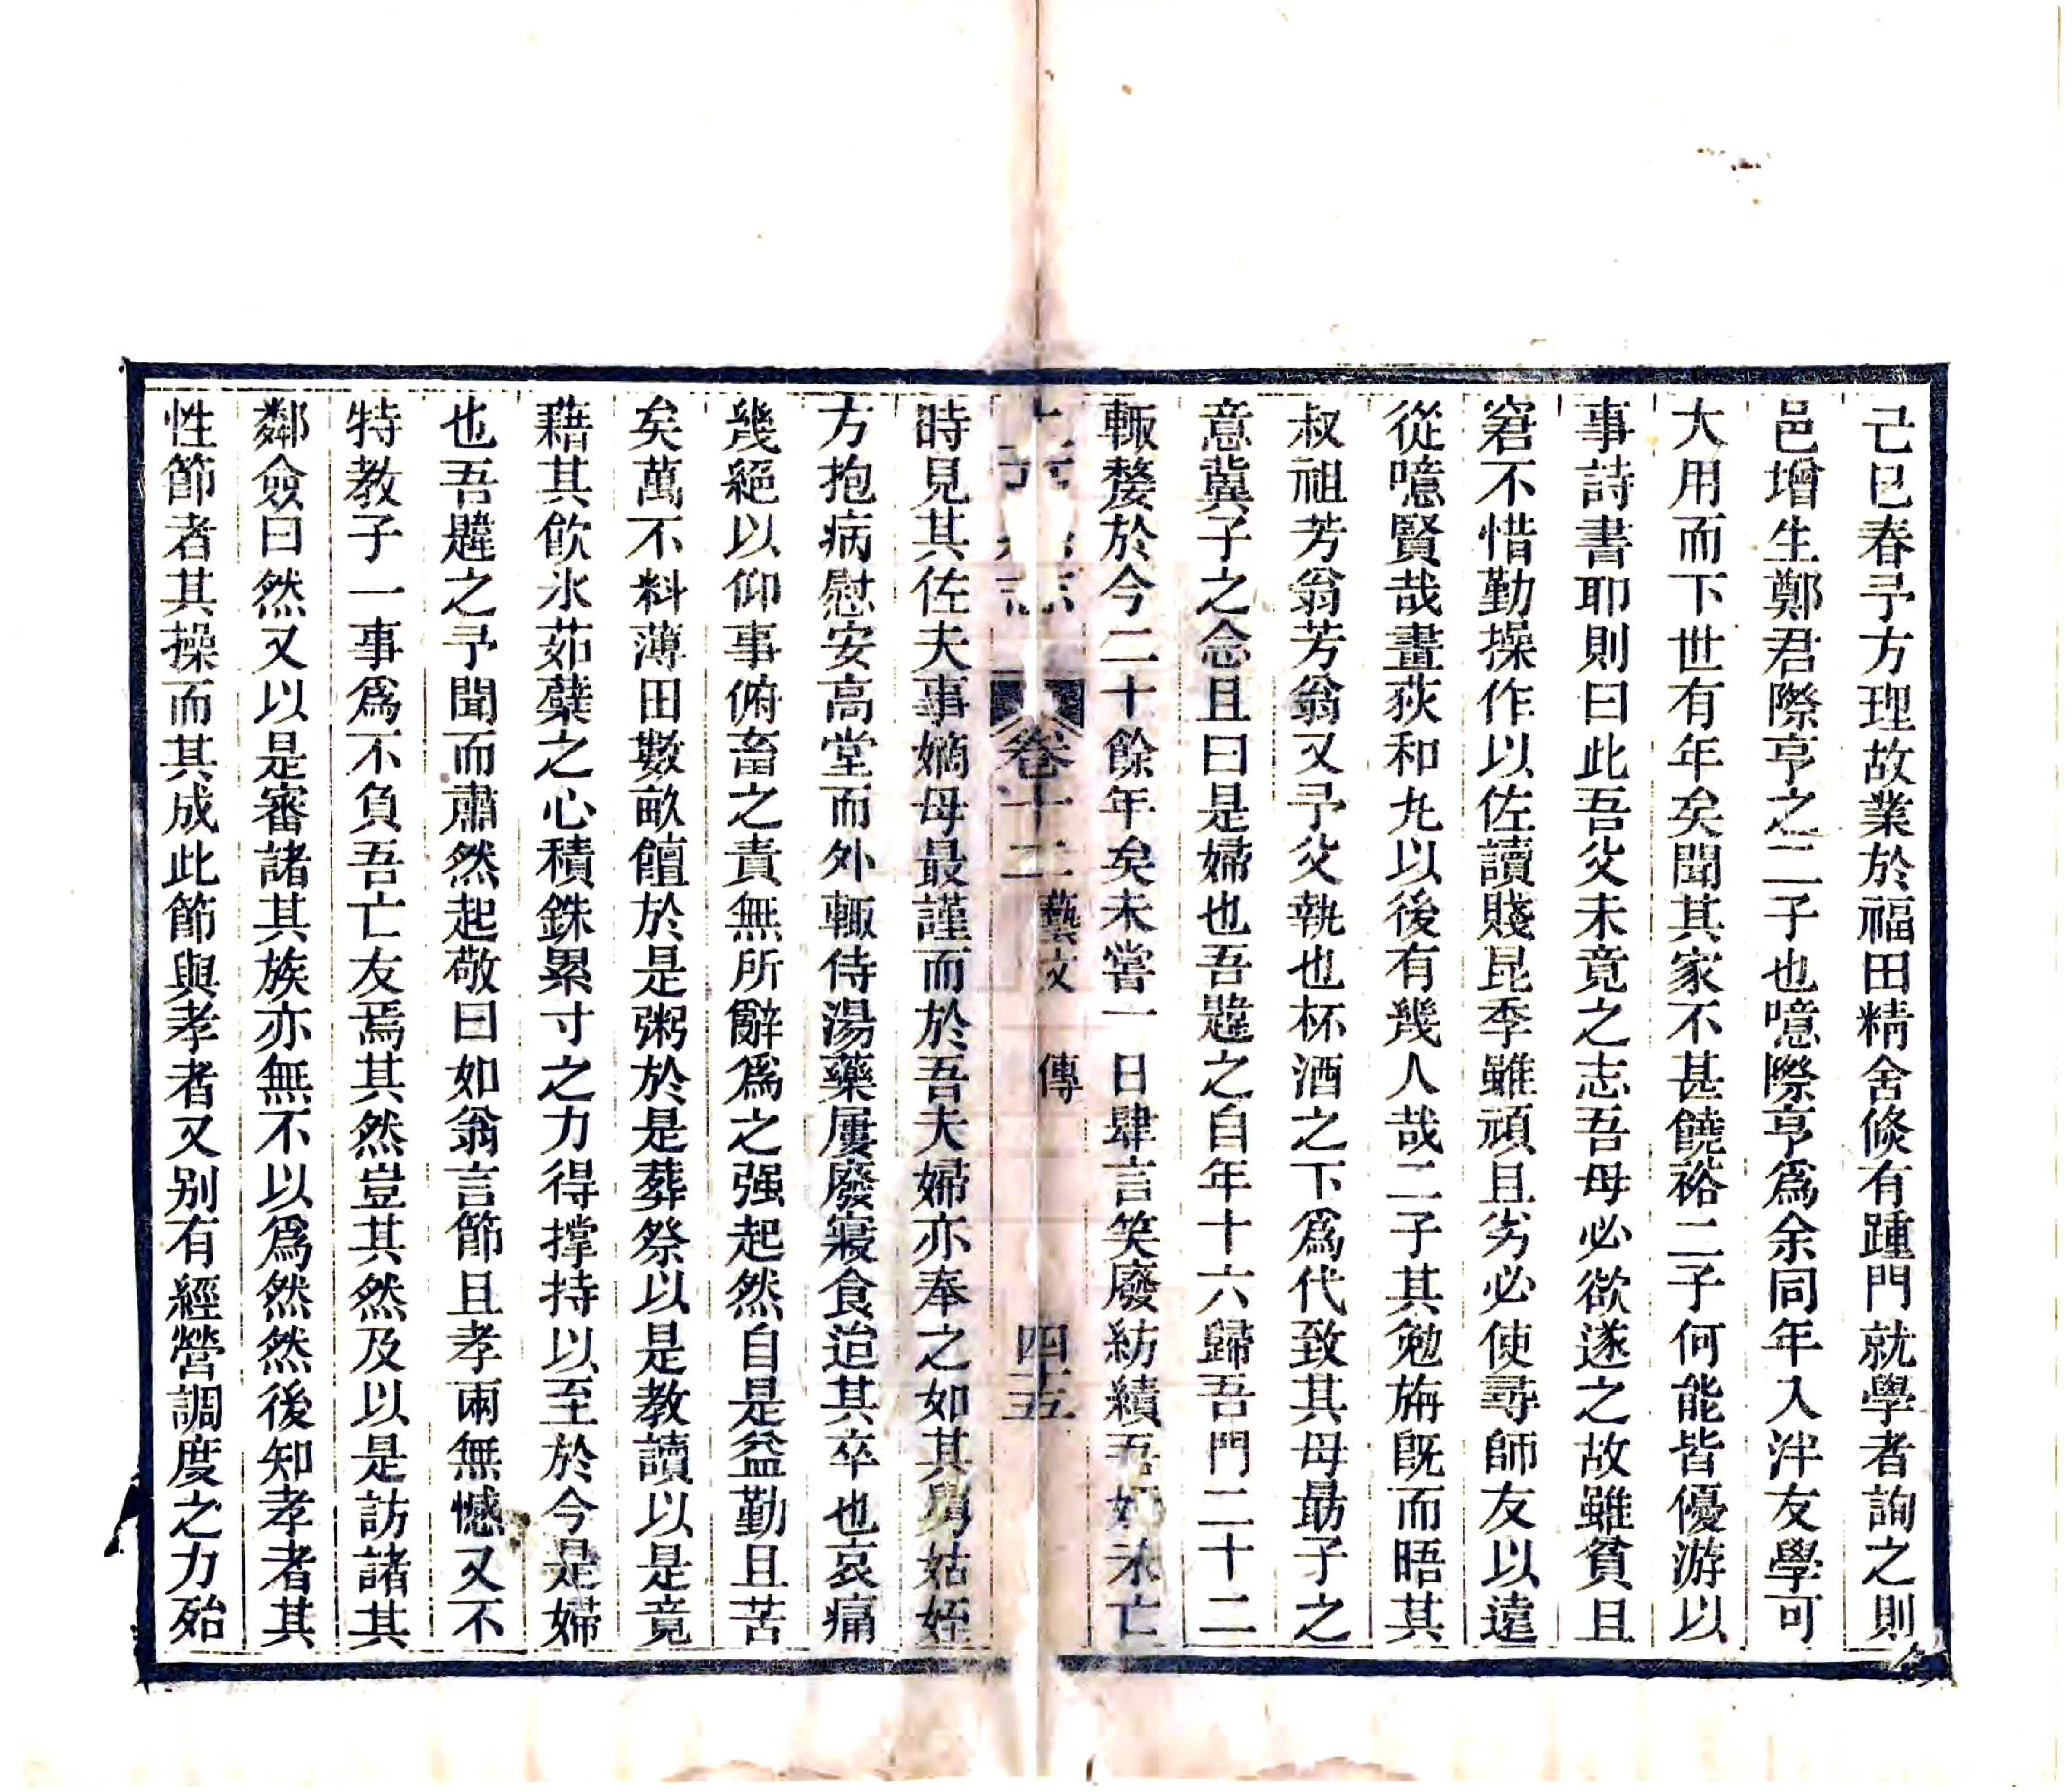 己巳春予方理故業於福田精舍倐有踵門就學者詢之則
邑增生鄭君際亨之二子也噫際亨爲余同年入泮友學可
大用而下世有年矣聞其家不甚饒裕二子何能皆優游以
事詩書耶則曰此吾父未竟之志吾母必欲遂之故雖貧且
窘不惜勤操作以佐讀賤昆季雖頑且劣必使尋師友以遠
從噫賢哉畫荻和丸以後有幾人哉二子其勉旃旣而晤其
叔祖芳翁芳翁又予父執也杯酒之下爲代致其母勗子之
意冀子之念且曰是婦也吾韙之自年十六歸吾門二十二
輒嫠於今二十餘年矣未嘗一日肆言笑廢紡績吾姪未亡
卷十二 藝文 傳 四十五
時見其佐夫事嫡母最謹而於吾夫婦亦奉之如其舅姑姪
方抱病慰安高堂而外輒侍湯藥屢廢寢食迨其卒也哀痛
幾絕以仰事俯畜之責無所辭爲之强起然自是益勤且苦
矣萬不料薄田數畝饘於是粥於是葬祭以是教讀以是竟
藉其飮氷茹蘗之心積銖累寸之力得撑持以至於今是婦
也吾韙之予聞而肅然起敬曰如翁言節且孝兩無憾又不
特教子一事爲不負吾亡友焉其然豈其然及以是訪諸其
鄰僉曰然又以是審諸其族亦無不以爲然然後知孝者其
性節者其操而其成此節與孝者又別有經營調度之力殆